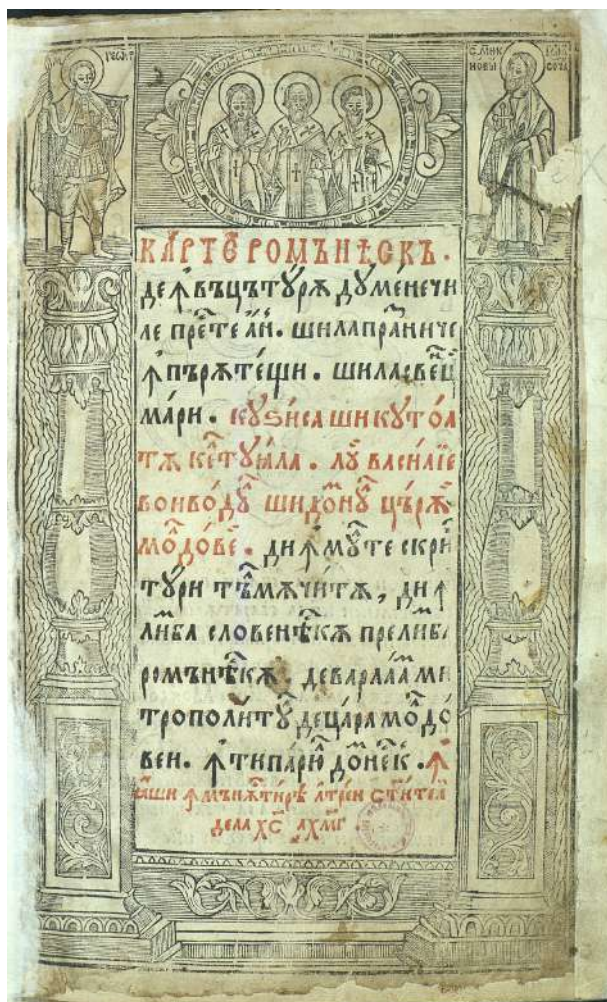 КАРТЕ РОМЪНѢСКЪ.
ДЕ ꙞВЪЦЪТꙊРѪ ДꙊМЕ́НЕЧИ
ЛЕ ПРЕ́СТЕ А́Н҆. ШИ ЛА ПРА́ꙀНИЧЕ
ꙞПЪРѪТЕ́ЩИ. ШИ ЛА СВЕН҆Ц
МА́РИ. КꙊ ЅИ́СА ШИ КꙊ ТО́А
ТѪ КЕ҆ЛТꙊꙗ́ЛА. ЛꙊ́Й ВАСИ́ЛІЕ
ВОИВО́ДꙊЛ ШИ ДО́МНꙊЛ ЦЪРЇЙ
МОЛДО́ВЕЙ. ДИꙞ МꙊЛТЕ СКРИП
ТꙊ́РИ ТЪЛМѪЧИ́ТѪ, ДИꙞ
ЛИ́МБА СЛОВЕНѢ́СКѪ ПРЕ ЛИ́МБА
РОМЪНѢ́СКѪ. ДЕ ВАРЛАА́М МИ
ТРОПОЛИ́ТꙊЛ ДЕ ЦА́РА МОЛДО́
ВЕЙ. Ꙟ ТИПА́РЮЛ ДОМНЕ́СК. Ꙟ
ꙖШИ Ꙟ МЪНѪСТИ́РѢ А ТРЕЙ С҃ТИ́ТЕЛ
ДЕЛА Х҃С АХМГ